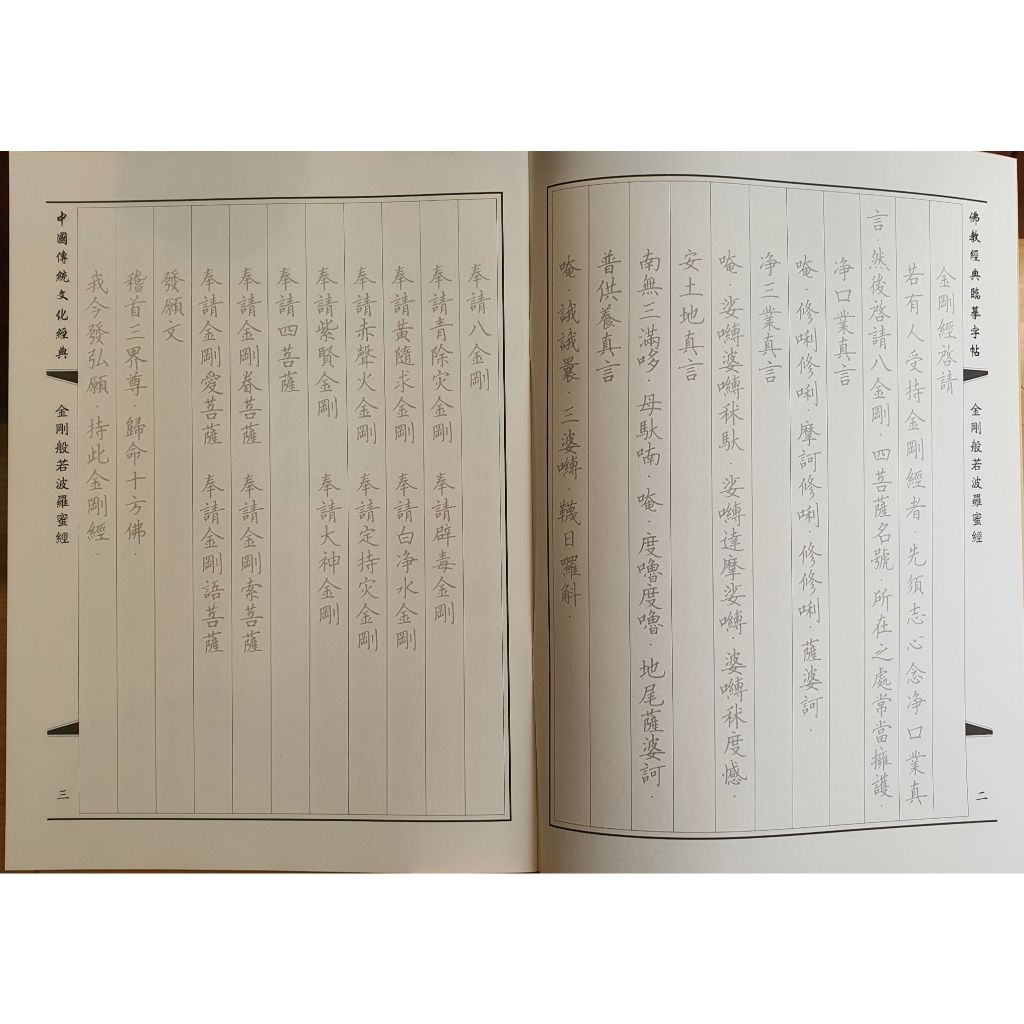 佛教經典臨摹字帖
金剛般若波羅蜜經
二
金剛經啓請
若有人受持金剛經者．先須志心念净口業真
言．然後啓請八金剛．四菩薩名號．所在之處常當擁護．
净口業真言
唵．修唎修唎．摩訶修唎．修修唎．薩婆訶．
净三業真言
唵．娑嚩婆嚩秫馱．娑嚩達摩娑嚩．婆嚩秫度憾．
安土地真言
南無三滿哆．母馱喃．唵．度嚕度嚕．地尾薩婆訶．
普供養真言
唵．誐誐曩．三婆嚩．韈日囉斛．
奉請八金剛
奉請青除灾金剛 奉請辟毒金剛
奉請黃隨求金剛 奉請白净水金剛
奉請赤聲火金剛 奉請定持灾金剛
奉請紫賢金剛 奉請大神金剛
奉請四菩薩
奉請金剛眷菩薩 奉請金剛索菩薩
奉請金剛愛菩薩 奉請金剛語菩薩
發願文
稽首三界尊．歸命十方佛．
我今發弘願．持此金剛經．
中國傳統文化經典
金剛般若波羅蜜經
三